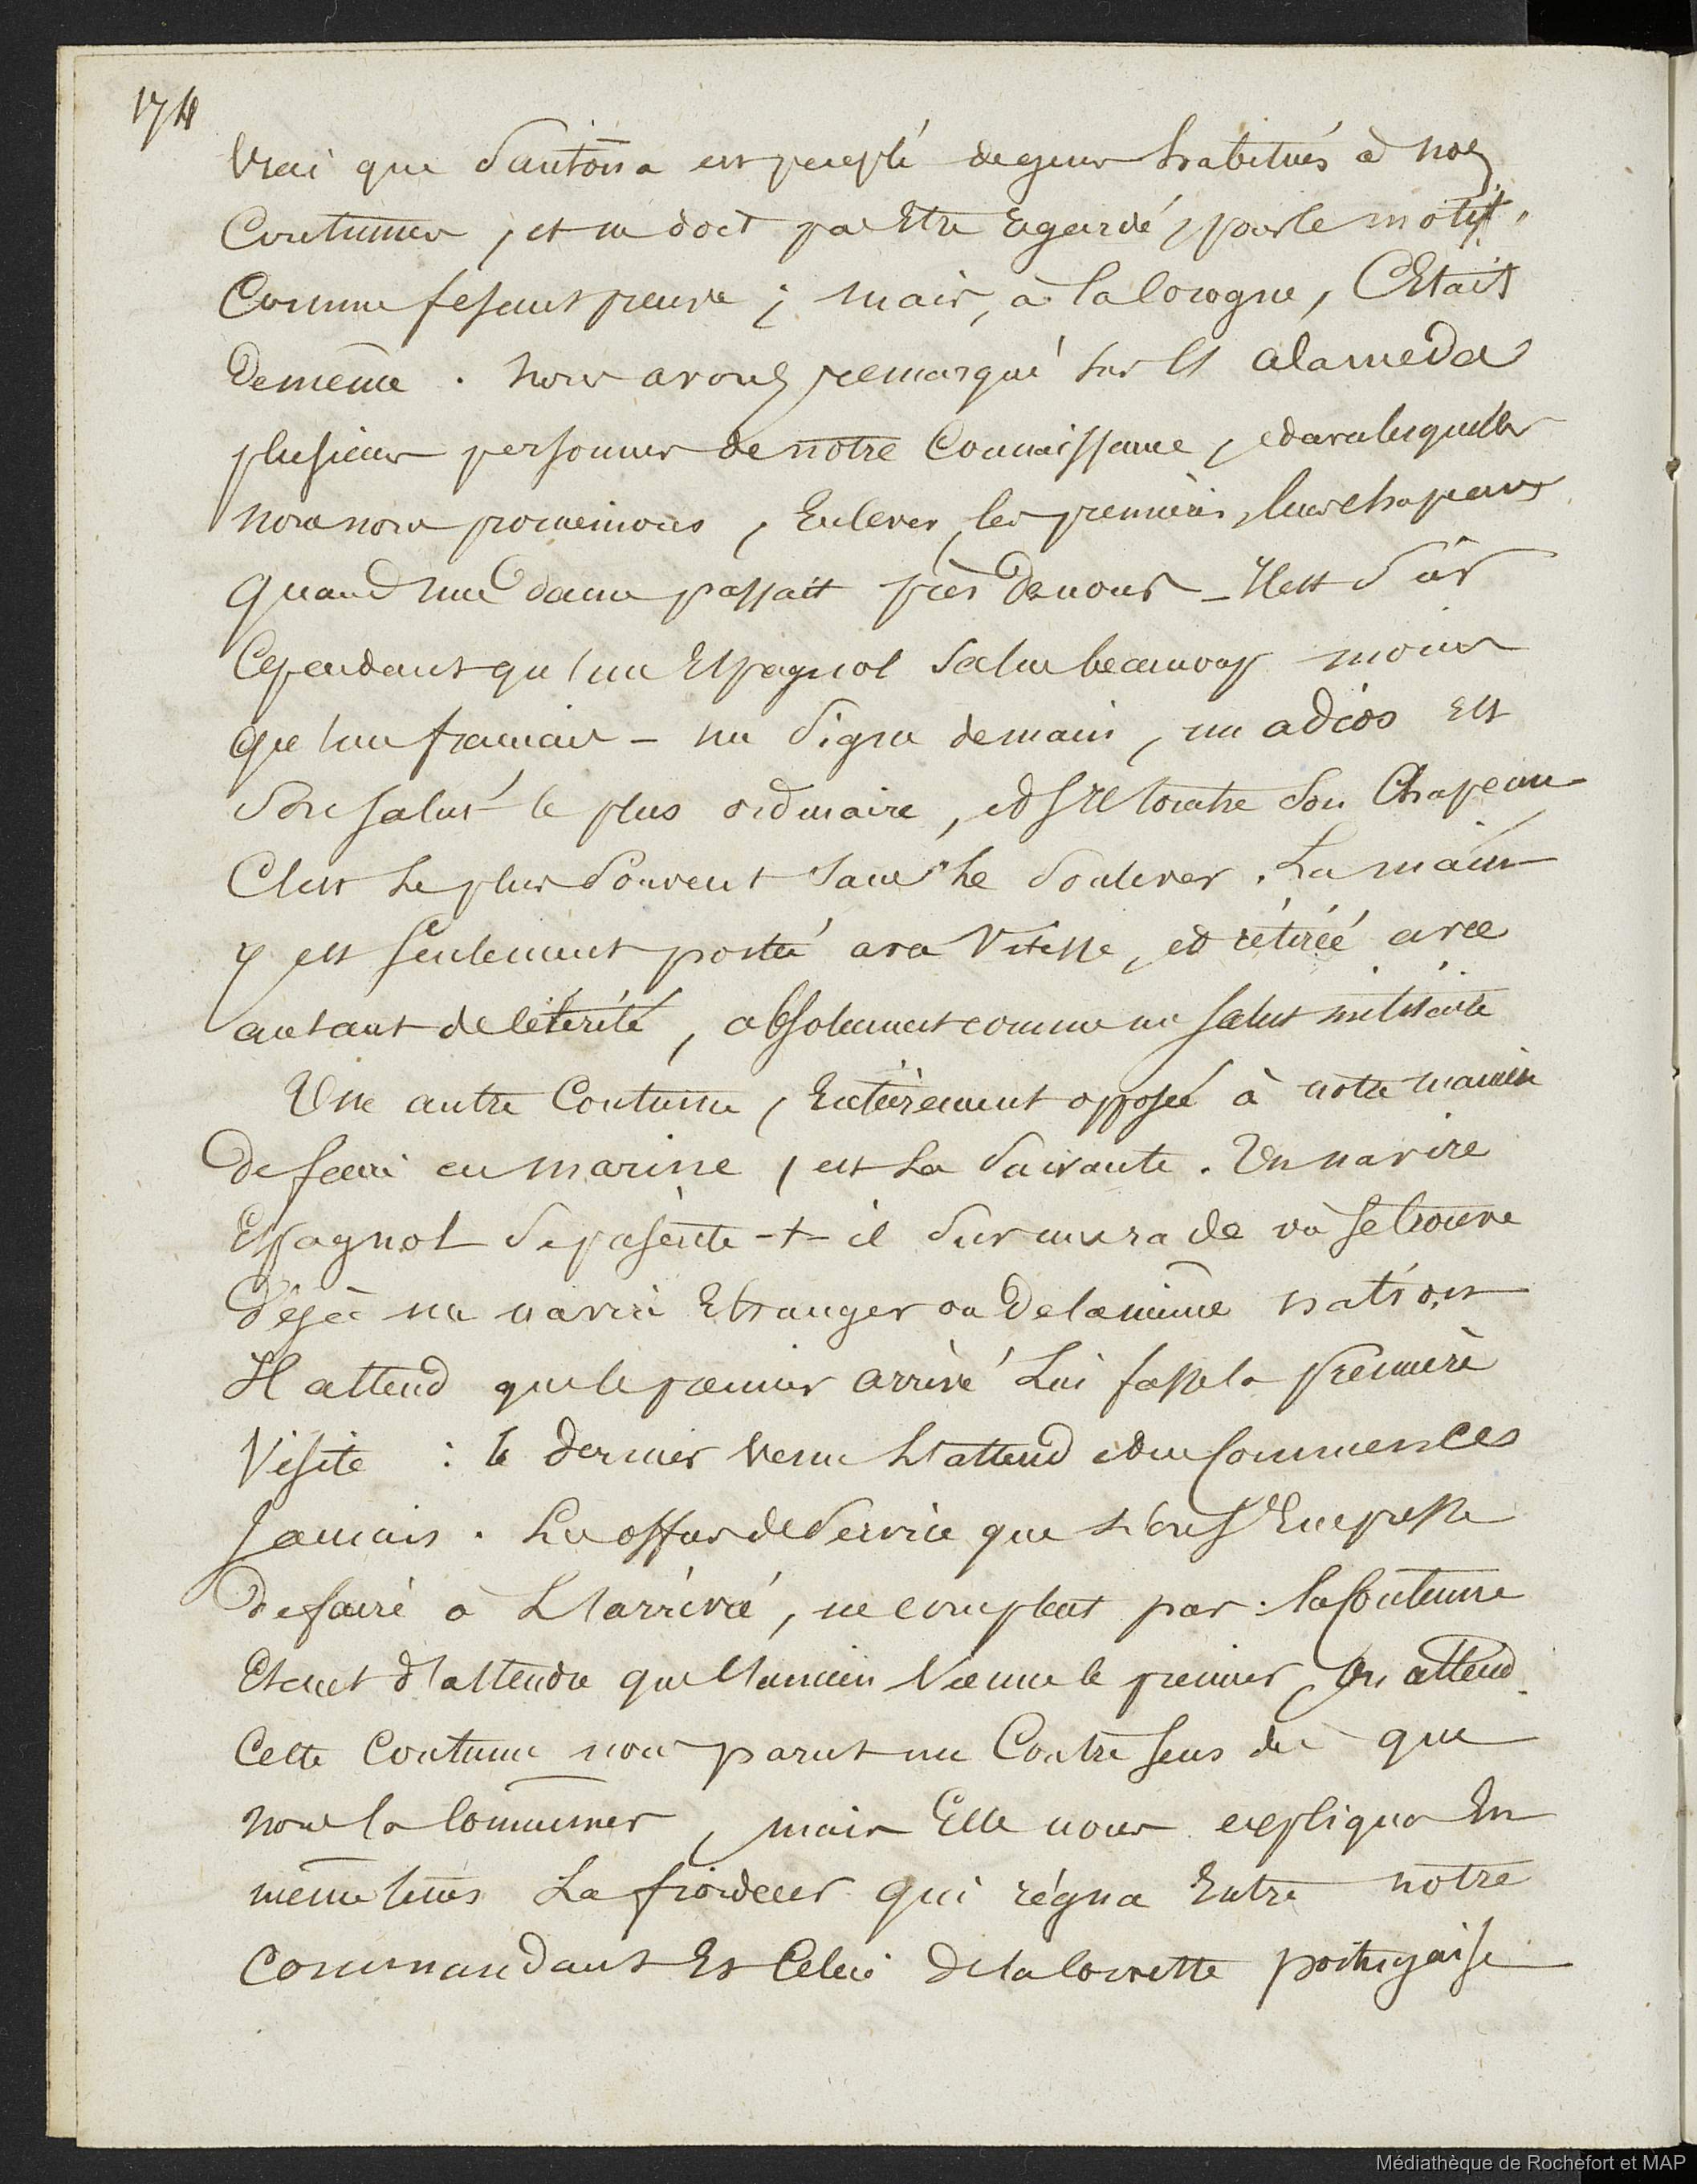 174
Vrai que Santona est peuplé de gens habitués à nos
Coutumes, et ne doit pas Etre regardé, pour le motif,
Comme fesant preuve ; mais, à la Corogne, C'Etait
de même. nous avons remarqué sur l'alameda
plusieurs personnes de notre Connaissance, et avec lesquelles
nous nous promenions, Enlever, les premiers, leurs chapeaux
quand une dame passait près de nous - Il est sûr
Cependant qu'un Espagnol salue beaucoup moins
que l'un francais - un signe de main, un adios est
son salut le plus ordinaire, et s'il touche son Chapeau
C'est le plus souvent sans le soulever. La main
y est seulement portée avec vitesse, et retirée avec
autant de célérité, absolument comme un salut militaire
Une autre Coutume, Entièrement opposée à notre manière
de faire en marine, est la suivante. Un navire
Espagnol se présente-t-il sur une rade où se trouve
déjà un navire Etranger ou de la même nation
Il attend que le premier arrivé lui fasse la première
visite : le dernier venu l'attend et ne commence
jamais. Les offres de service que l'on s'Empresse
de faire à l'arrivée, ne comptent pas. la Coutume
Etant d'attendre que l'ancien vienne le premier, on attend
Cette Coutume nous parut un Contre sens dès que
nous la connumes, mais Elle nous expliqua En
même tems La froideur qui régna Entre notre
Commandant Et Celui de la corvette portugaise
Médiathèque de Rochefort et MAP